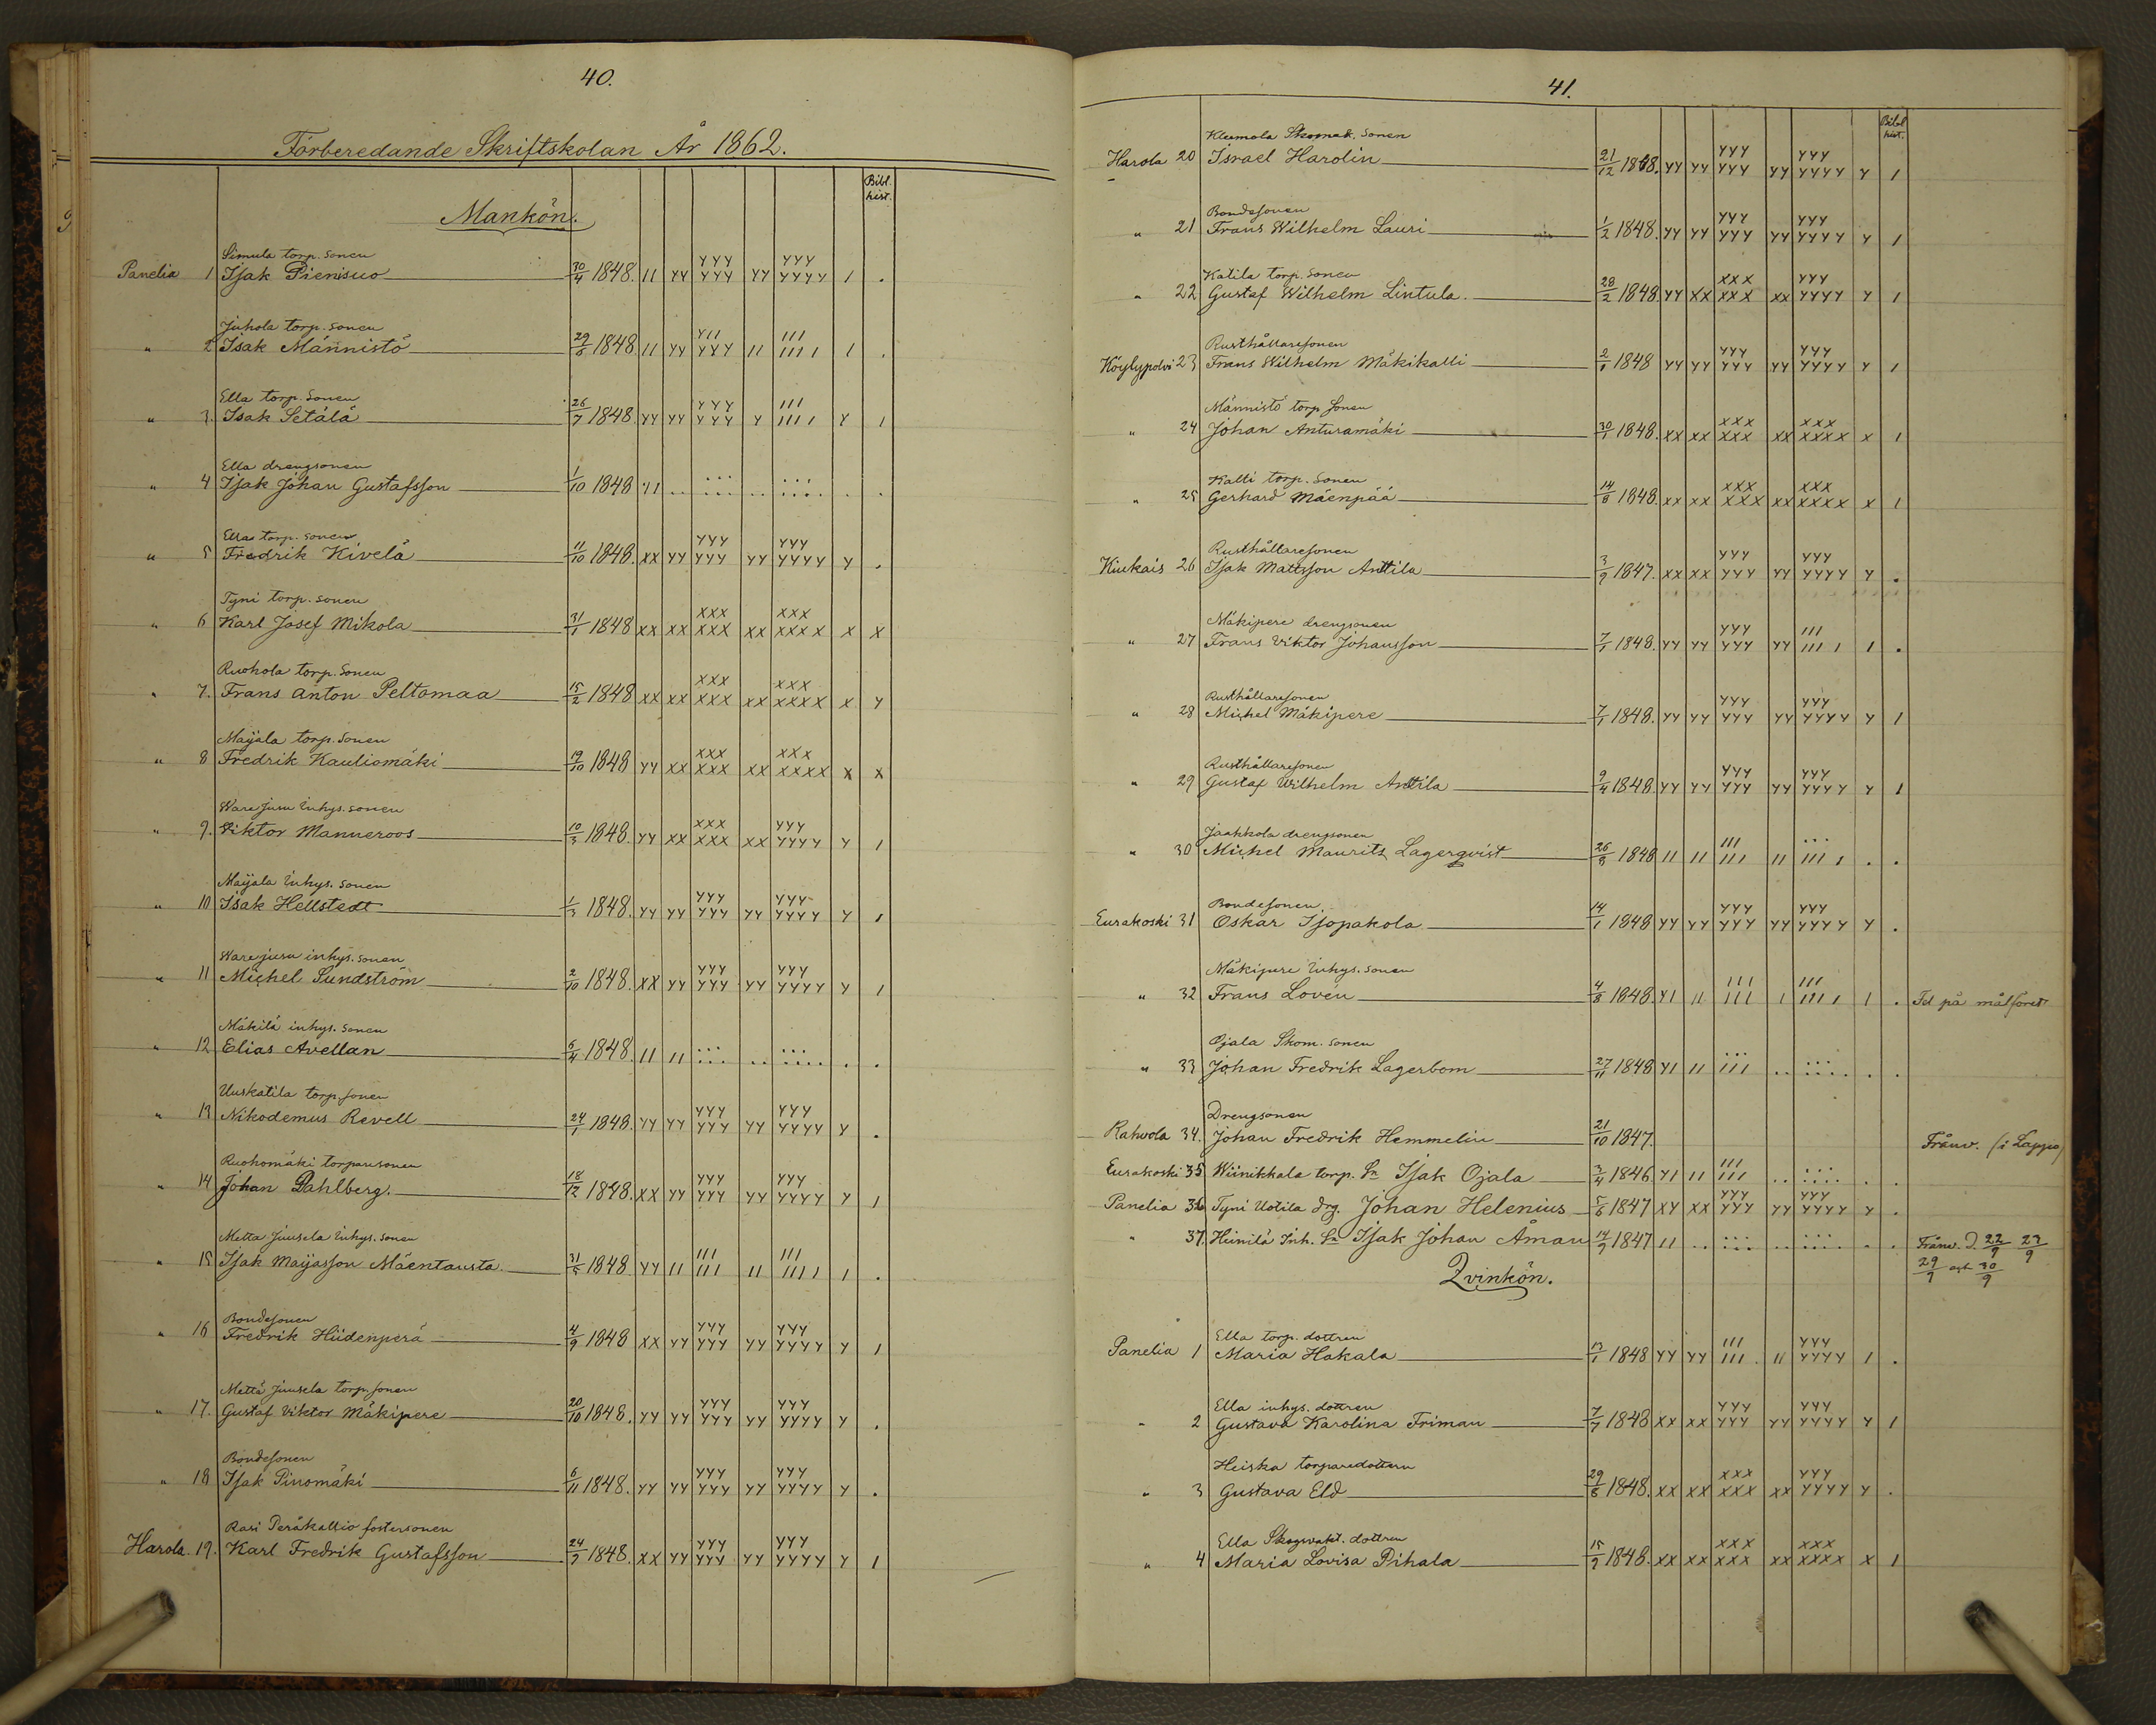 40.
Förberedande Skriftskolan År 1862.
Bibl. hist.
Mankön.
Simula torp. sonen
Panelia 1 Isak Pienisuo 30/4 1848. II YY YYY YYY YY YYY YYYY I .
Juhola torp. sonen
" 2 Isak Männistö 29/6 1848. II YY YII YYY II III IIII I .
Ella torp. sonen
" 3. Isak Setälä 26/7 1848. YY YY YYY YYY Y III IIII Y I
Ella drengsonen
" 4 Isak Johan Gustafsson 1/10 1848 YI .. ... ... .. ... .... . .
Ella torp. sonen
" 5 Fredrik Kivelä 11/10 1848. XX YY YYY YYY YY YYY YYYY Y .
Tyni torp. sonen
" 6 Karl Josef Mikola 31/1 1848 XX XX XXX XXX XX XXX XXXX X X
Ruohola torp. sonen
" 7. Frans Anton Peltomaa 15/2 1848 XX XX XXX XXX XX XXX XXXX X Y
Maijala torp. sonen
" 8 Fredrik Kauliomäki 19/10 1848 YY XX XXX XXX XX XXX XXXX X X
Warejusu inhys. sonen
" 9. Viktor Manneroos 10/3 1848. YY XX XXX XXX XX YYY YYYY Y I
Maijala inhys. sonen
" 10 Isak Hellstedt 1/3 1848. YY YY YYY YYY YY YYY YYYY Y I
Warejusu inhys. sonen
" 11 Michel Sundström 2/10 1848. XX YY YYY YYY YY YYY YYYY Y I
Mäkilä inhys. sonen
" 12 Elias Avellan 6/4 1848. II II ... ... .. ... .... . .
Uuskatila torp. sonen
" 13 Nikodemus Revell 24/1 1848. YY YY YYY YYY YY YYY YYYY Y .
Ruohomäki torparesonen
" 14 Johan Dahlberg. 18/12 1848. XX YY YYY YYY YY YYY YYYY Y I
Metta Juusela inhys. sonen
" 15 Isak Maijasson Mäentausta 31/5 1848 YY II III III II III IIII I .
Bondesonen
" 16 Fredrik Hiidenperä 4/9 1848 XX YY YYY YYY YY YYY YYYY Y I
Mettä Juusela torp. sonen
" 17. Gustaf Viktor Mäkipere 20/10 1848. YY YY YYY YYY YY YYY YYYY Y .
Bondesonen
" 18 Isak Pinomäki 6/11 1848. YY YY YYY YYY YY YYY YYYY Y .
Rasi Peräkallio fostersonen
Harola. 19. Karl Fredrik Gustafsson 24/7 1848. XX YY YYY YYY YY YYY YYYY Y I
41.
Bibl hist.
Kleemola Skomak. sonen
Harola 20 Israel Harolin 21/12 1848. YY YY YYY YYY YY YYY YYYY Y I
Bondesonen
" 21 Frans Wilhelm Lauri 1/2 1848. YY YY YYY YYY YY YYY YYYY Y I
Katila torp. sonen
" 22 Gustaf Wilhelm Lintula. 28/2 1848 YY XX XXX XXX XX YYY YYYY Y I
Rusthållaresonen
Köylypolvi 23 Frans Wilhelm Mäkikalli 2/1 1848 YY YY YYY YYY YY YYY YYYY Y I
Männistö torp sonen
" 24 Johan Anturamäki 30/1 1848. XX XX XXX XXX XX XXX XXXX X I
Kalli torp. sonen
" 25 Gerhard Mäenpää 14/8 1848. XX XX XXX XXX XX XXX XXXX X I
Rusthållaresonen
Kiukais 26 Isak Mattsson Anttila 3/9 1847. XX XX YYY YYY YY YYY YYYY Y .
Mäkipere drengsonen
" 27 Frans Viktor Johansson 7/1 1848. YY YY YYY YYY YY III IIII I .
Rusthållaresonen
" 28 Michel Mäkipere 7/1 1848. YY YY YYY YYY YY YYY YYYY Y I
Rusthållaresonen
" 29 Gustaf Wilhelm Anttila 9/4 1848. YY YY YYY YYY YY YYY YYYY Y I
Jaakkola drengsonen
" 30 Michel Maurits Lagerqvist 26/8 1848 II II III III II ... IIII . .
Bondesonen
Eurakoski 31 Oskar Isopakola 14/1 1848 YY YY YYY YYY YY YYY YYYY Y .
Mäkipere inhys. sonen
" 32 Frans Lovén 4/8 1848. YI II III III I III IIII I . Fel på målföret
Ojala Skom. sonen
" 33 Johan Fredrik Lagerbom 27/11 1848 YI II ... III .. ... .... . .
Drengsonen
Rahvola 34. Johan Fredrik Hemmelin 21/10 1847. Frånv. (i Lappo)
Eurakoski 35 Wiinikkala torp. Sn Isak Ojala 3/4 1846 YI II III III .. ... .... . .
Panelia 36 Tyni Uotila drg. Johan Helenius 5/6 1847 XY XX YYY YYY YY YYY YYYY Y .
" 37. Heinilä Inh. Sn Isak Johan Åman 14/9 1847 II .. ... ... .. ... .... . . Frånv. d. 22/9 23/9
29/9 och 30/9
Qvinkön.
Ella torp. dottren
Panelia 1 Maria Hakala 13/1 1848 YY YY III III II YYY YYYY I .
Ella inhys. dottren
" 2 Gustava Karolina Friman 7/7 1848 XX XX YYY YYY YY YYY YYYY Y I
Heiska torparedottern
" 3 Gustava Eld 29/8 1848. XX XX XXX XXX XX YYY YYYY Y .
Ella Skogvakt. dottren
" 4 Maria Lovisa Pihala 15/9 1848. XX XX XXX XXX XX XXX XXXX X I